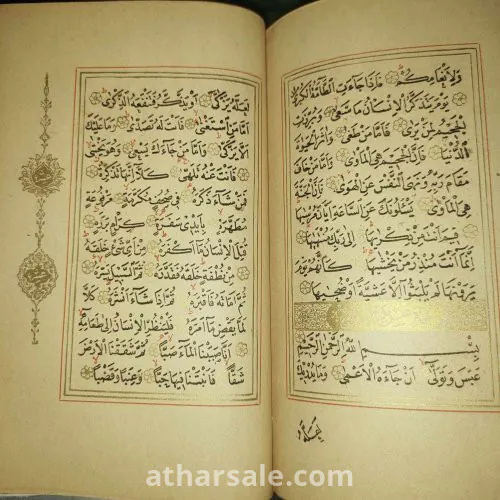 وَلِاَنْعَامِكُمْ فَاِذَا جَاءَتِ الطَّامَّةُ الْكُبْرٰى
يَوْمَ يَتَذَكَّرُ الْاِنْسَانُ مَا سَعٰى وَبُرِّزَتِ
الْجَحِيمُ لِمَنْ يَرٰى فَاَمَّا مَنْ طَغٰى وَاٰثَرَ الْحَيٰوةَ
الدُّنْيَا فَاِنَّ الْجَحِيمَ هِيَ الْمَاْوٰى وَاَمَّا مَنْ خَافَ
مَقَامَ رَبِّهِ وَنَهَى النَّفْسَ عَنِ الْهَوٰى فَاِنَّ الْجَنَّةَ
هِيَ الْمَاْوٰى يَسْئَلُونَكَ عَنِ السَّاعَةِ اَيَّانَ مُرْسٰيهَا
فِيمَ اَنْتَ مِنْ ذِكْرٰيهَا اِلٰى رَبِّكَ مُنْتَهٰيهَا
اِنَّمَا اَنْتَ مُنْذِرُ مَنْ يَخْشٰيهَا كَاَنَّهُمْ يَوْمَ
يَرَوْنَهَا لَمْ يَلْبَثُوا اِلَّا عَشِيَّةً اَوْ ضُحٰيهَا
بِسْمِ اللّٰهِ الرَّحْمٰنِ الرَّحِيمِ
عَبَسَ وَتَوَلّٰى اَنْ جَاءَهُ الْاَعْمٰى وَمَا يُدْرِيكَ
لعله
لَعَلَّهُ يَزَّكّٰى اَوْ يَذَّكَّرُ فَتَنْفَعَهُ الذِّكْرٰى
اَمَّا مَنِ اسْتَغْنٰى فَاَنْتَ لَهُ تَصَدّٰى وَمَا عَلَيْكَ
اَلَّا يَزَّكّٰى وَاَمَّا مَنْ جَاءَكَ يَسْعٰى وَهُوَ يَخْشٰى
فَاَنْتَ عَنْهُ تَلَهّٰى كَلَّا اِنَّهَا تَذْكِرَةٌ
فَمَنْ شَاءَ ذَكَرَهُ فِي صُحُفٍ مُكَرَّمَةٍ مَرْفُوعَةٍ
مُطَهَّرَةٍ بِاَيْدِي سَفَرَةٍ كِرَامٍ بَرَرَةٍ
قُتِلَ الْاِنْسَانُ مَا اَكْفَرَهُ مِنْ اَيِّ شَيْءٍ خَلَقَهُ
مِنْ نُطْفَةٍ خَلَقَهُ فَقَدَّرَهُ ثُمَّ السَّبِيلَ يَسَّرَهُ
ثُمَّ اَمَاتَهُ فَاَقْبَرَهُ ثُمَّ اِذَا شَاءَ اَنْشَرَهُ كَلَّا
لَمَّا يَقْضِ مَا اَمَرَهُ فَلْيَنْظُرِ الْاِنْسَانُ اِلٰى طَعَامِهِ
اَنَّا صَبَبْنَا الْمَاءَ صَبًّا ثُمَّ شَقَقْنَا الْاَرْضَ
شَقًّا فَاَنْبَتْنَا فِيهَا حَبًّا وَعِنَبًا وَقَضْبًا
atharsale.com